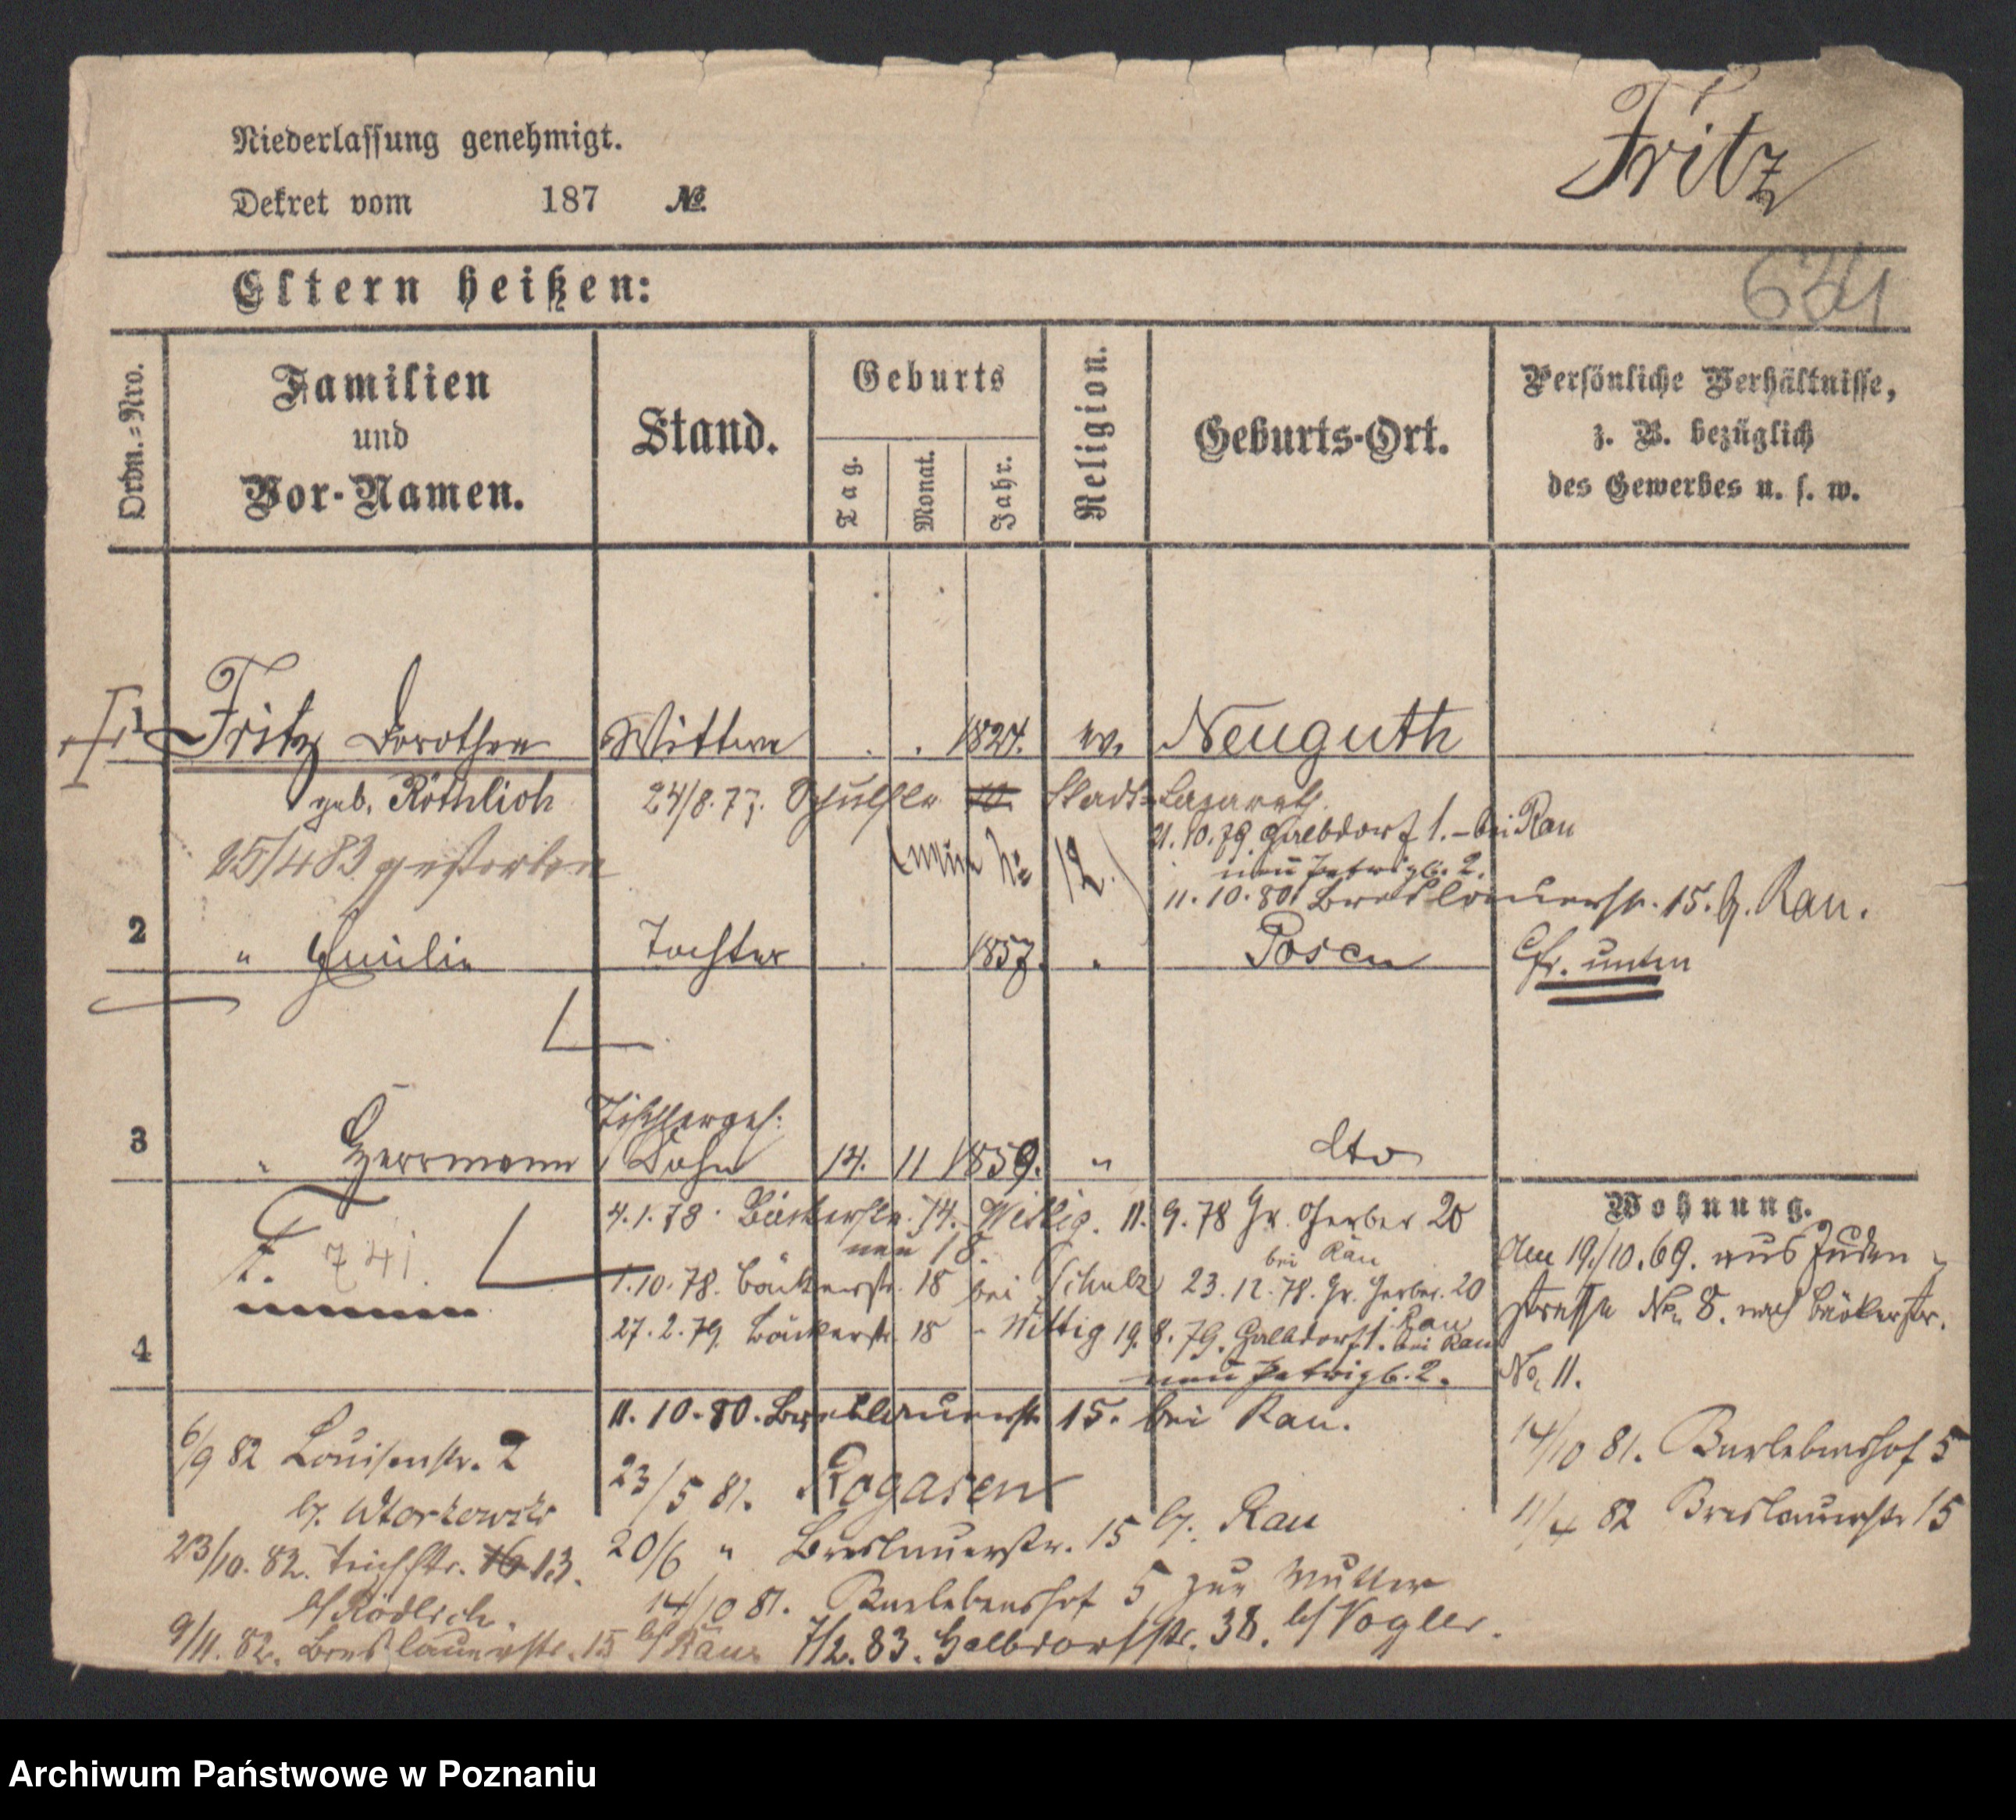 Niederlassung genehmigt.
Dekret vom 187 №
Fritz
634
Eltern heißen:
Ordn.=Nro.
Familien
und
Vor-Namen.
Stand.
Geburts
Tag.
Monat.
Jahr.
Religion.
Geburts-Ort.
Persönliche Verhältnisse,
z. B. bezüglich
des Gewerbes u. s. w.
1 Fritz Dorothea Wittwe 1824. ev. Neuguth
geb. Röthlich 24/8. 77. Schulstr. 10. Stadt-Lazareth.
(neue No 12.)
21. 10. 79. Halbdorf 1. - bei Rau
neu Petrigb. 2.
25/4 83 gestorben
11. 10. 80. Breslauerstr. 15. b. Rau.
2 " Emilie Tochter 1857. " Posen Cfr. unten
3 " Herrmann Tischlerges. Sohn 14. 11 1859. " dto
4. 1. 78. Bäckerstr. 14. Wittig. 11. 9. 78 Gr. Gerber 20
neu 18. bei Rau
F. 741.
1. 10. 78. Bäckerstr. 18 bei Schulz 23. 12. 78. Gr. Gerber. 20
Rau
27. 2. 79. Bäckerstr. 18 - Wittig 19. 8. 79. Halbdorf 1. bei Rau
neu Petrigb. 2.
4
11. 10. 80. Breslauerstr. 15. bei Rau.
Wohnung.
Am 19./10. 69. aus Juden-
strasse No. 8. nach Bäckerstr.
No. 11.
14/10 81. Barlebenshof 5
11/4 82 Breslauerstr 15
6/9 82 Louisenstr. 2
b.
23/10. 82. Teichstr. 16 13.
b/ Rödlich.
9/11. 82. Breslauerstr. 15 b/ Rau
23/5 81. Rogasen
20/6 " Breslauerstr. 15 b. Rau
14/10 81. Barlebenshof 5 zur Mutter
7/2. 83. Halbdorfstr. 38. b/ Vogler.
Archiwum Państwowe w Poznaniu